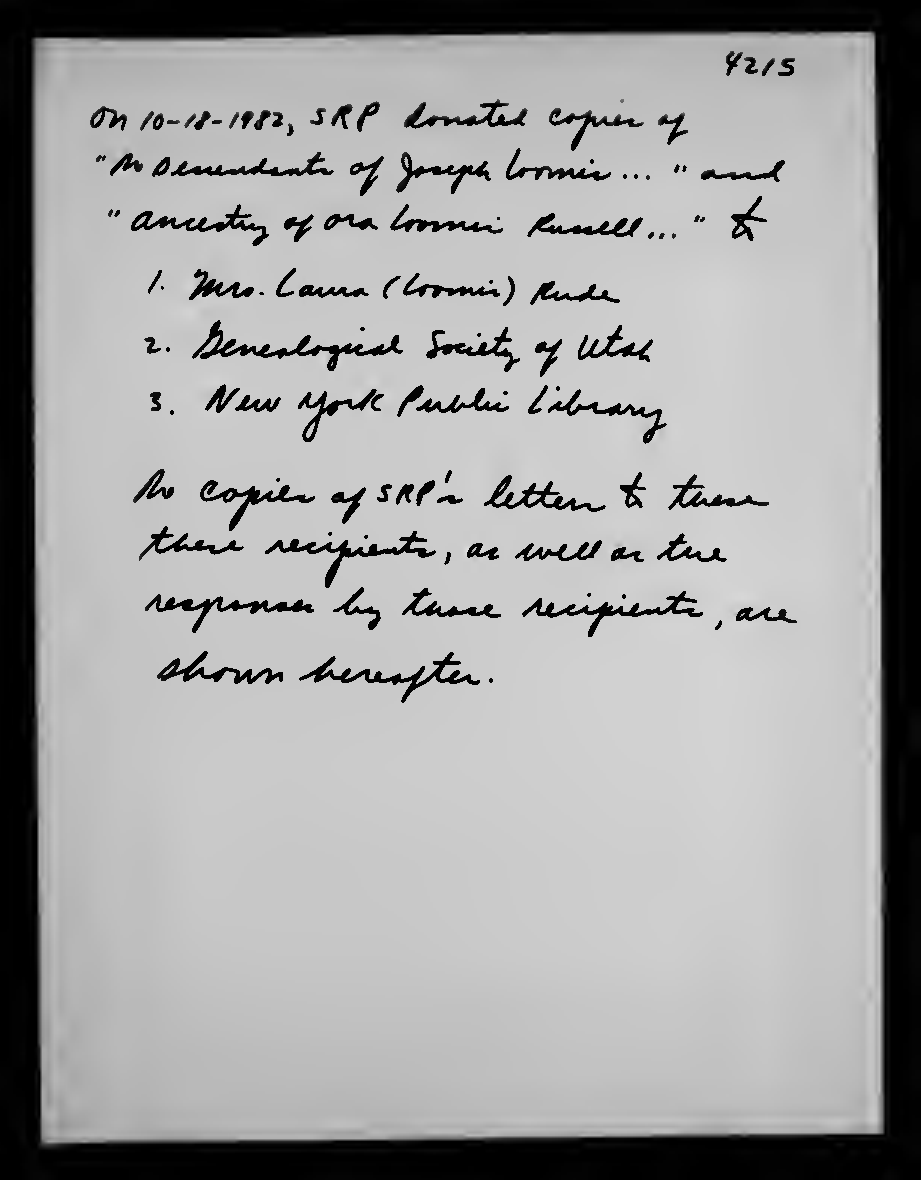 4215
On 10-18-1982, SRP donated copies of
"The Descendants of Joseph Loomis ..." and
"Ancestry of Ora Loomis Russell ..." to
1. Mrs. Laura (Loomis) Rude
2. Genealogical Society of Utah
3. New York Public Library
The copies of SRP's letters to these
these recipients, as well as the
responses by those recipients, are
shown hereafter.